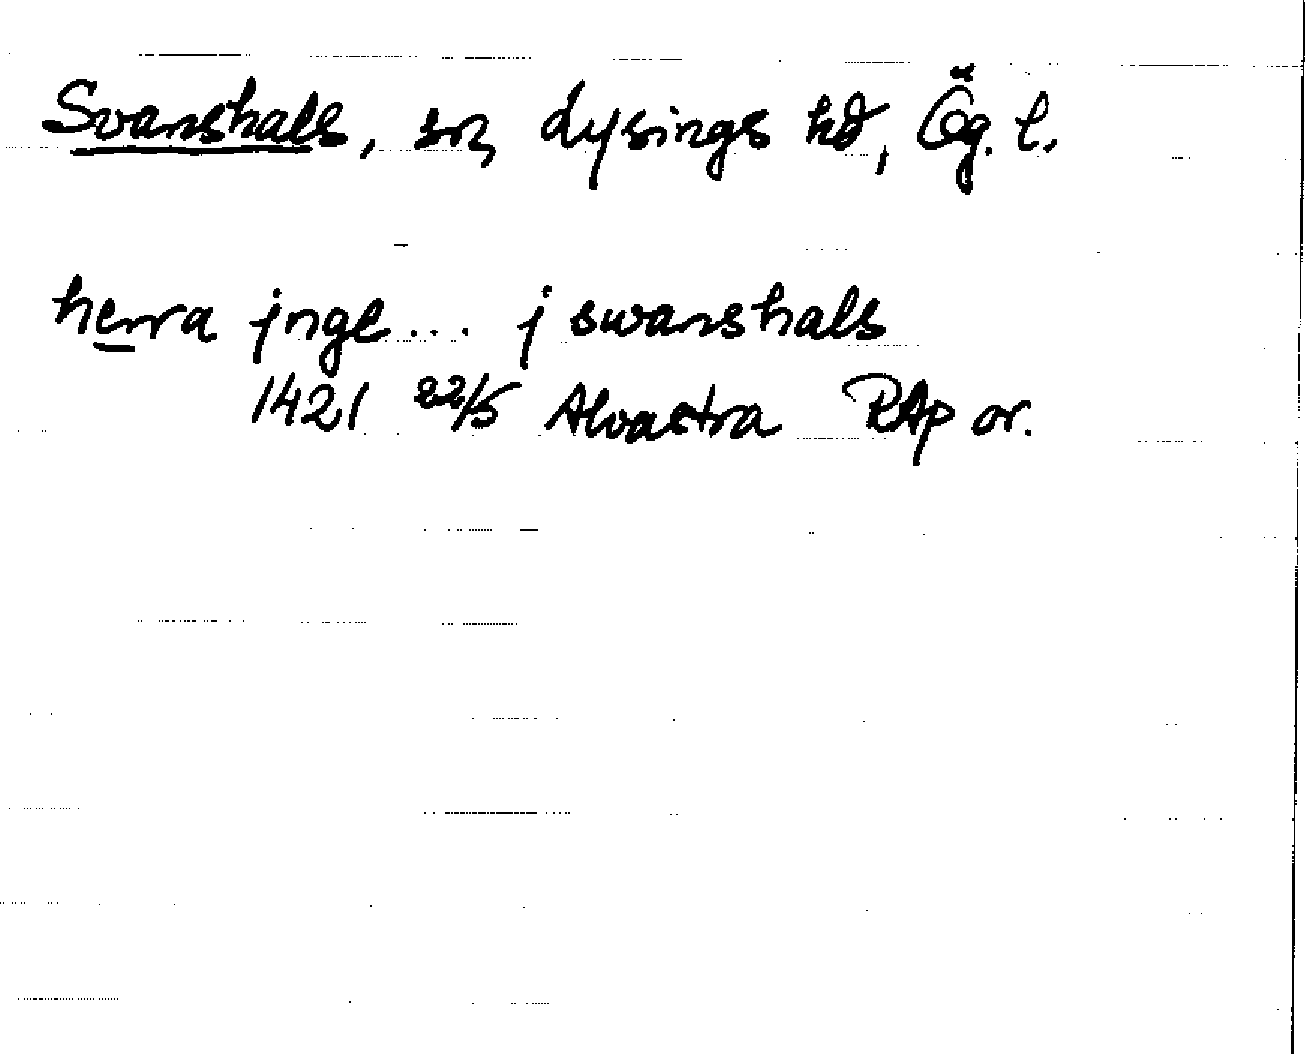 Svanshals, sn, Lysings hd, Ög. l.
herra jnge... j swanshals
1421 22/5 Alvastra RAp or.